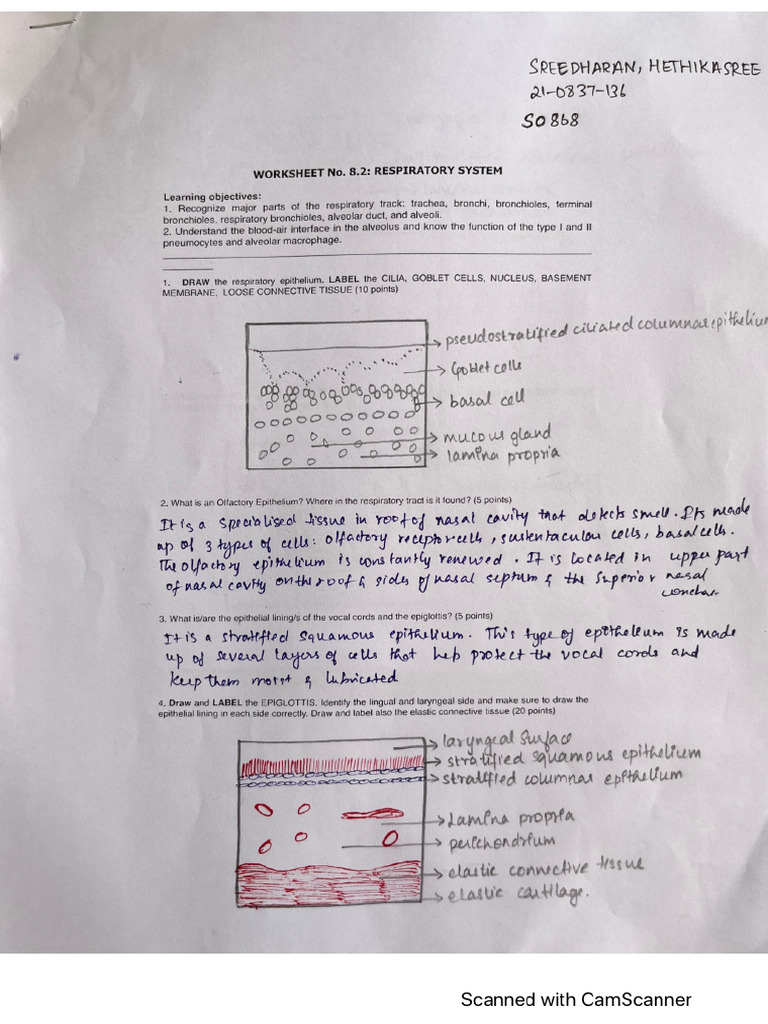 SREEDHARAN, HETHIKASREE
21-0837-136
SO868
WORKSHEET No. 8.2: RESPIRATORY SYSTEM
Learning objectives:
1. Recognize major parts of the respiratory track: trachea, bronchi, bronchioles, terminal
bronchioles, respiratory bronchioles, alveolar duct, and alveoli.
2. Understand the blood-air interface in the alveolus and know the function of the type I and II
pneumocytes and alveolar macrophage.
1. DRAW the respiratory epithelium. LABEL the CILIA, GOBLET CELLS, NUCLEUS, BASEMENT
MEMBRANE, LOOSE CONNECTIVE TISSUE (10 points)
pseudostratified ciliated columnar epithelium
Goblet cells
basal cell
mucous gland
lamina propria
2. What is an Olfactory Epithelium? Where in the respiratory tract is it found? (5 points)
It is a specialised tissue in roof of nasal cavity that detects smell. Its made
up of 3 types of cells: olfactory receptor cells, sustentacular cells, basal cells.
The olfactory epithelium is constantly renewed. It is located in upper part
of nasal cavity on the roof & sides of nasal septum & the superior nasal
conchae
3. What is/are the epithelial lining/s of the vocal cords and the epiglottis? (5 points)
It is a stratified squamous epithelium. This type of epithelium is made
up of several layers of cells that help protect the vocal cords and
keep them moist & lubricated
4. Draw and LABEL the EPIGLOTTIS. Identify the lingual and laryngeal side and make sure to draw the
epithelial lining in each side correctly. Draw and label also the elastic connective tissue (20 points)
laryngeal surface
stratified squamous epithelium
stratified columnar epithelium
Lamina propria
perichondrium
elastic connective tissue
elastic cartilage.
Scanned with CamScanner